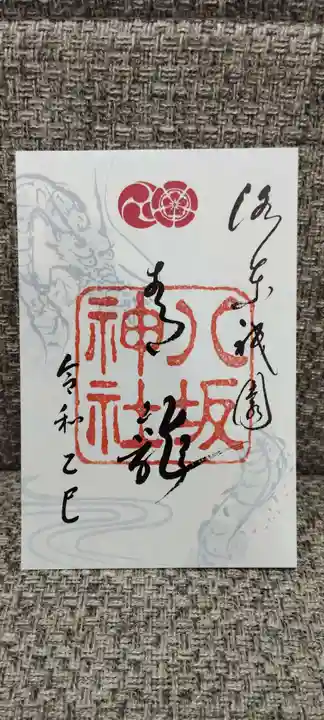 洛東祇園
青龍
八坂
神社
令和乙巳